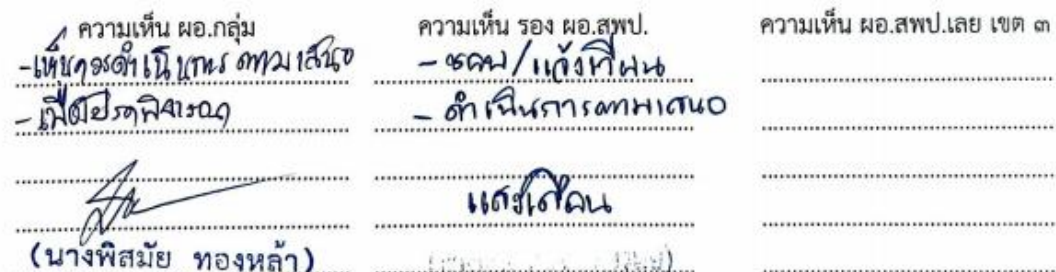 ความเห็น ผอ.กลุ่ม
-เห็นควรดำเนินการ ตามเสนอ
- เพื่อโปรดพิจารณา
(นางพิสมัย ทองหล้า)
ความเห็น รอง ผอ.สพป.
- ชอบ/แจ้งที่
- ดำเนินการตามเสนอ
ความเห็น ผอ.สพป.เลย เขต ๓